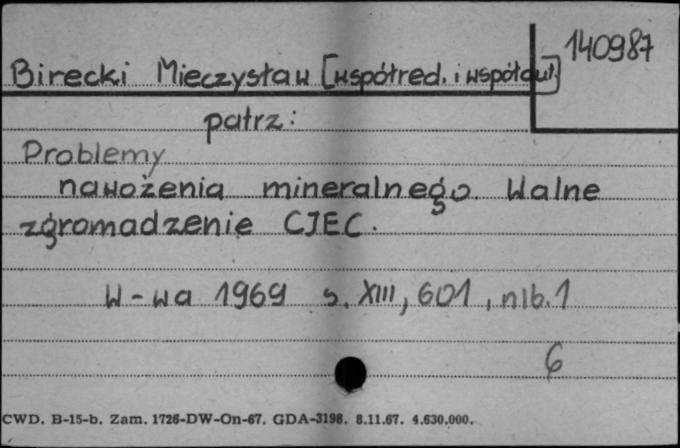 140987
Birecki Mieczysław [współred. i współaut.]
patrz:
Problemy
nawożenia mineralnego. Walne
zgromadzenie CIEC.
W-wa 1969 s. XIII, 601, nlb. 1
6
CWD. B-15-b. Zam. 1726-DW-On-67. GDA-3198. 8.11.67. 4.630.000.